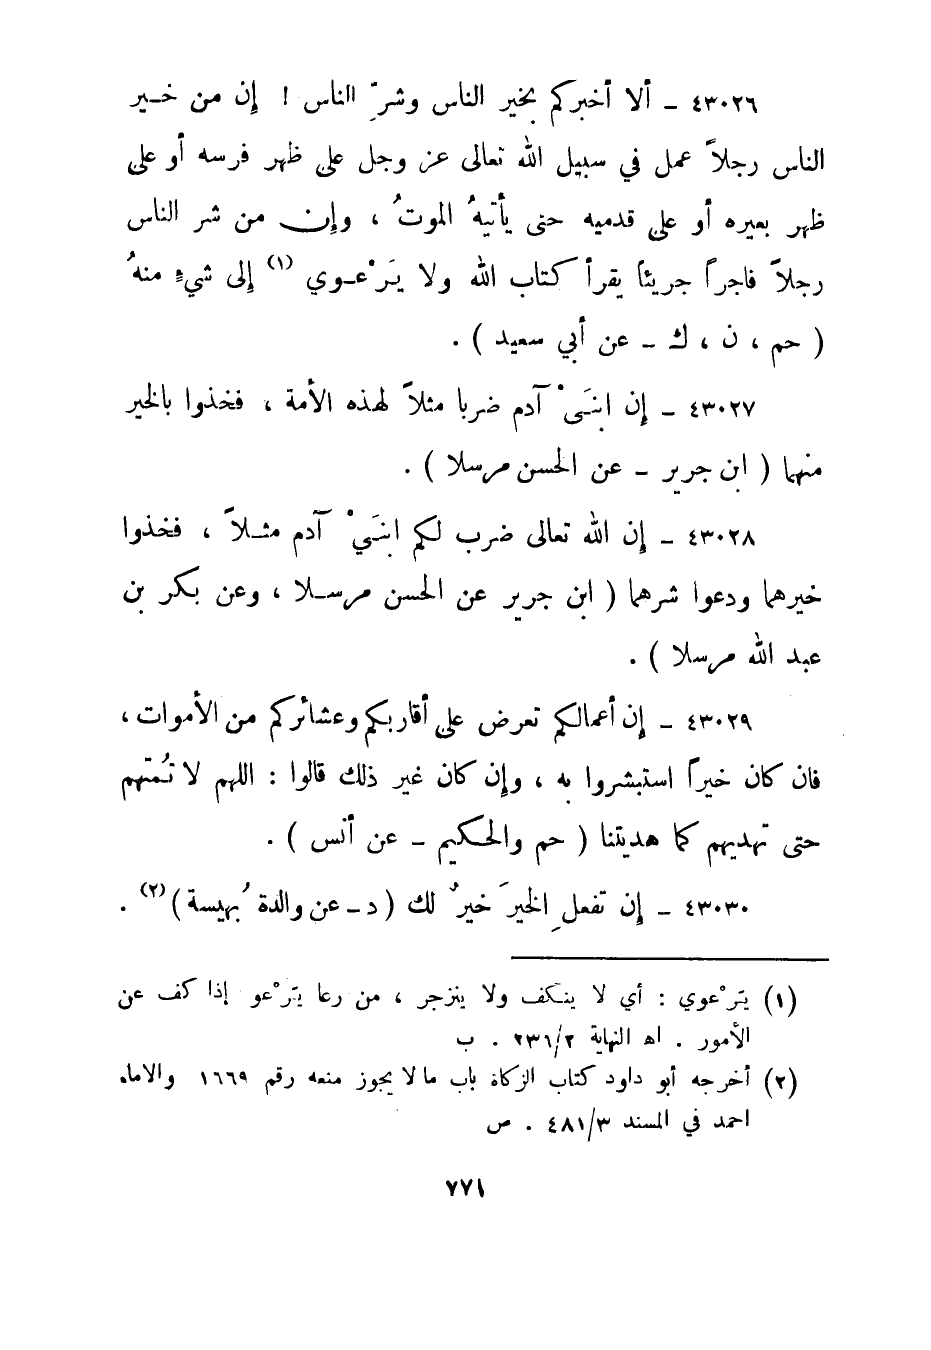 ٤٣٠٢٦ ـ ألا أخبركم بخير الناس وشرِّ الناس ! إن من خـير
الناس رجلاً عمل في سبيل الله تعالى عز وجل على ظهر فرسه أو على
ظهر بعيره أو على قدميه حتى يأتيهُ الموتُ ، وإن من شر الناس
رجلاً فاجراً جريئاً يقرأ كتاب الله ولا يَرْعـوي (١) إلى شيءٍ منهُ
( حم ، ن ، ك ـ عن أبي سعيد ) .
٤٣٠٢٧ ـ إن ابنَيْ آدم ضربا مثلاً لهذه الأمة ، فخذوا بالخير
منهما ( ابن جرير ـ عن الحسن مرسلا ) .
٤٣٠٢٨ ـ إن الله تعالى ضرب لكم ابنَيْ آدم مثـلاً ، فخذوا
خيرهما ودعوا شرهما ( ابن جرير عن الحسن مرسـلا ، وعن بكر بن
عبد الله مرسلا ) .
٤٣٠٢٩ ـ إن أعمالكم تعرض على أقاربكم وعشائركم من الأموات ،
فان كان خيراً استبشروا به ، وإن كان غير ذلك قالوا : اللهم لا تُمتهم
حتى تهديهم كما هديتنا ( حم والحكيم ـ عن أنس ) .
٤٣٠٣٠ ـ إن تفعلِ الخيرَ خيرٌ لك ( د ـ عن والدة بُهيسة ) (٢) .
(١) يَرْعوي : أي لا ينكف ولا ينزجر ، من رعا يَرْعو إذا كف عن
الأمور . اه النهاية ٢٣٦/٢ . ب
(٢) أخرجه أبو داود كتاب الزكاة باب ما لا يجوز منعه رقم ١٦٦٩ والامام
احمد في المسند ٤٨١/٣ . ص
٧٧١